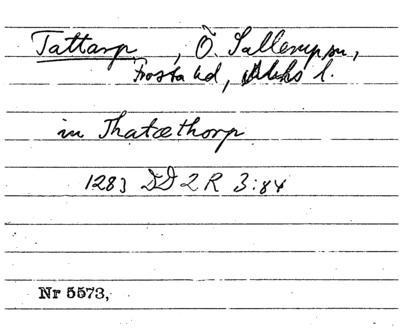 Tattarp, Ö. Sallerup sn,
Frosta hd, Mlhs l.
in Thatæthorp
1283 DD 2 R 3:84
Nr 5573,